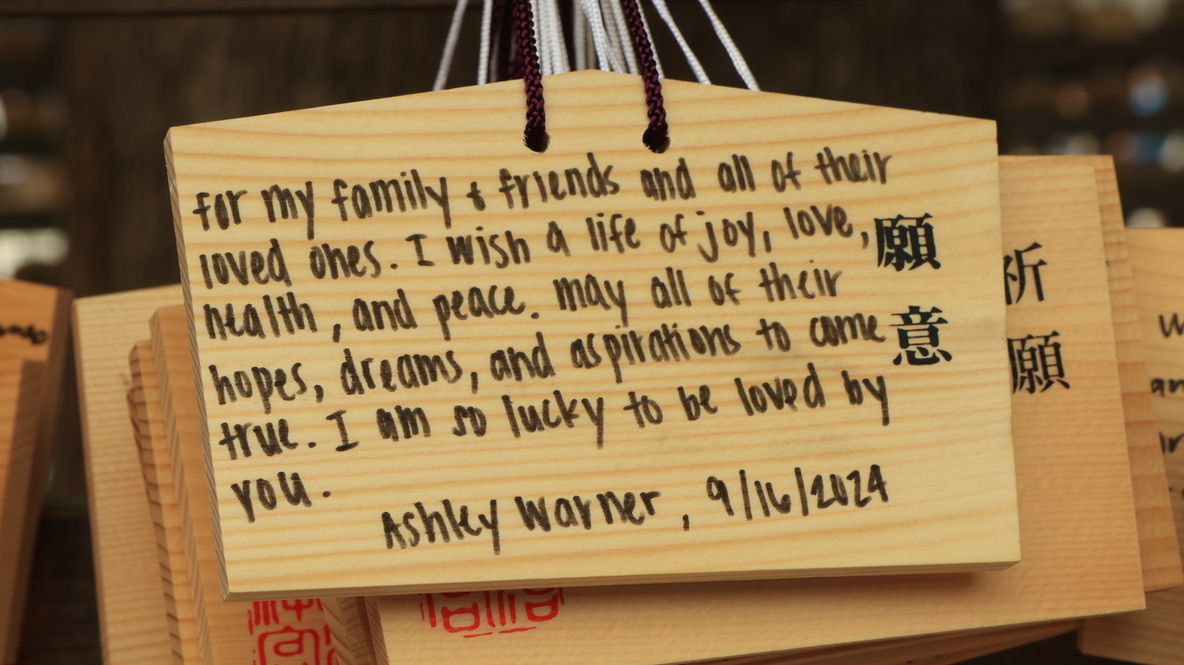 for my family & friends and all of their
loved ones. I wish a life of joy, love,
health, and peace. may all of their
hopes, dreams, and aspirations to come
true. I am so lucky to be loved by
you.
Ashley Warner, 9/16/2024
願意
祈願